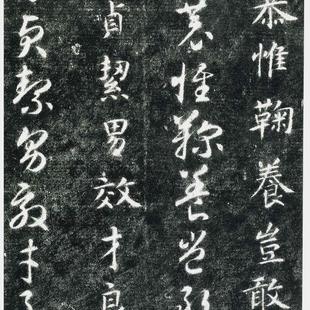 恭惟鞠養豈敢
恭惟鞠養豈敢
貞絜男效才良
貞絜男效才良